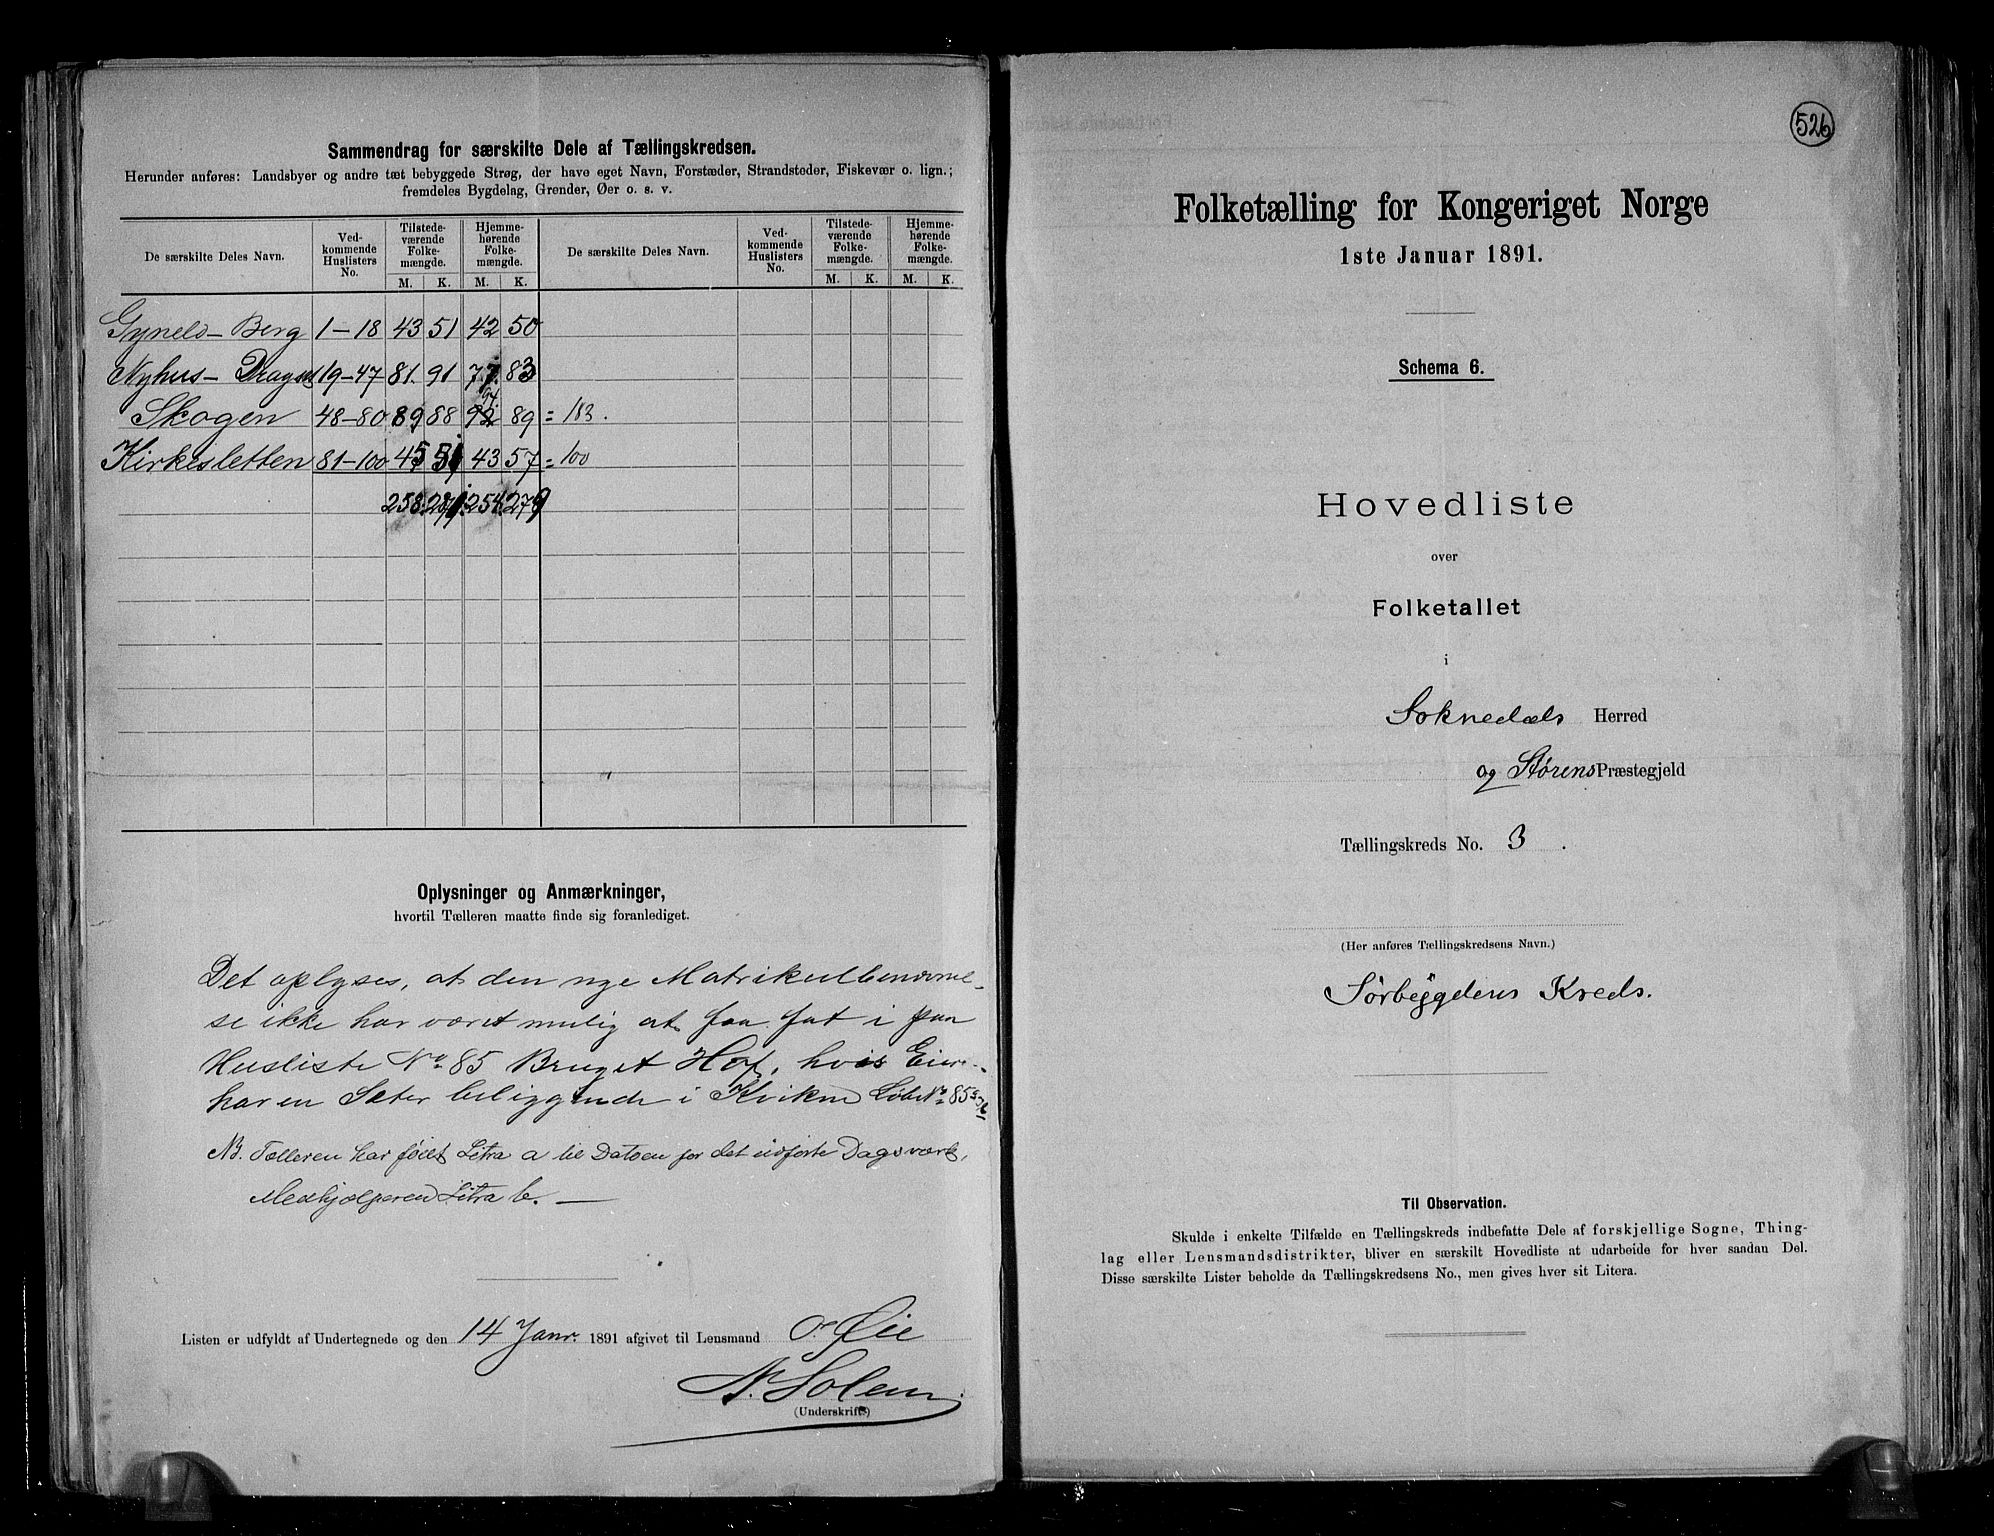 Sammendrag for særskilte Dele af Tællingskredsen.
Herunder anføres: Landsbyer og andre tæt bebyggede Strøg, der have eget Navn, Forstæder, Strandsteder, Fiskevær o. lign.;
fremdeles Bygdelag, Grender, Øer o. s. v.
De særskilte Deles Navn. Ved-kommende Huslisters No. Tilstede-værende Folke-mængde. Hjemme-hørende Folke-mængde. De særskilte Deles Navn. Ved-kommende Huslisters No. Tilstede-værende Folke-mængde. Hjemme-hørende Folke-mængde.
M. K. M. K. M. K. M. K.
Berg 1-18 43 51 42 50
Nyhus- 19-47 81. 91 77. 83
94.
Skogen 48-80 89 88 92 89 = 183.
Kirkesletten 81-100 45 51 43 57 = 100
258. 254. 279
Oplysninger og Anmærkninger,
hvortil Tælleren maatte finde sig foranlediget.
Det oplyses, at den nye Matrikulbenævnel-
se ikke har været mulig at faa fat i paa
Husliste No 85 Bruget Hof, hvis Eier
har en Sæter beliggende i Kvikne
NB. Tælleren har føiet Litra a til Datoen for det udførte Dagsværk,
Medhjælperen Litra b. —
Listen er udfyldt af Undertegnede og den 14 Janr. 1891 afgivet til Lensmand Øie
N. Solem
(Underskrift)
526
Folketælling for Kongeriget Norge
1ste Januar 1891.
Schema 6.
Hovedliste
over
Folketallet
i
Soknedals Herred
og Størens Præstegjeld
Tællingskreds No. 3.
(Her anføres Tællingskredsens Navn.)
Sørbygdens Kreds.
Til Observation.
Skulde i enkelte Tilfælde en Tællingskreds indbefatte Dele af forskjellige Sogne, Thing-
lag eller Lensmandsdistrikter, bliver en særskilt Hovedliste at udarbeide for hver saadan Del.
Disse særskilte Lister beholde da Tællingskredsens No., men gives hver sit Litera.